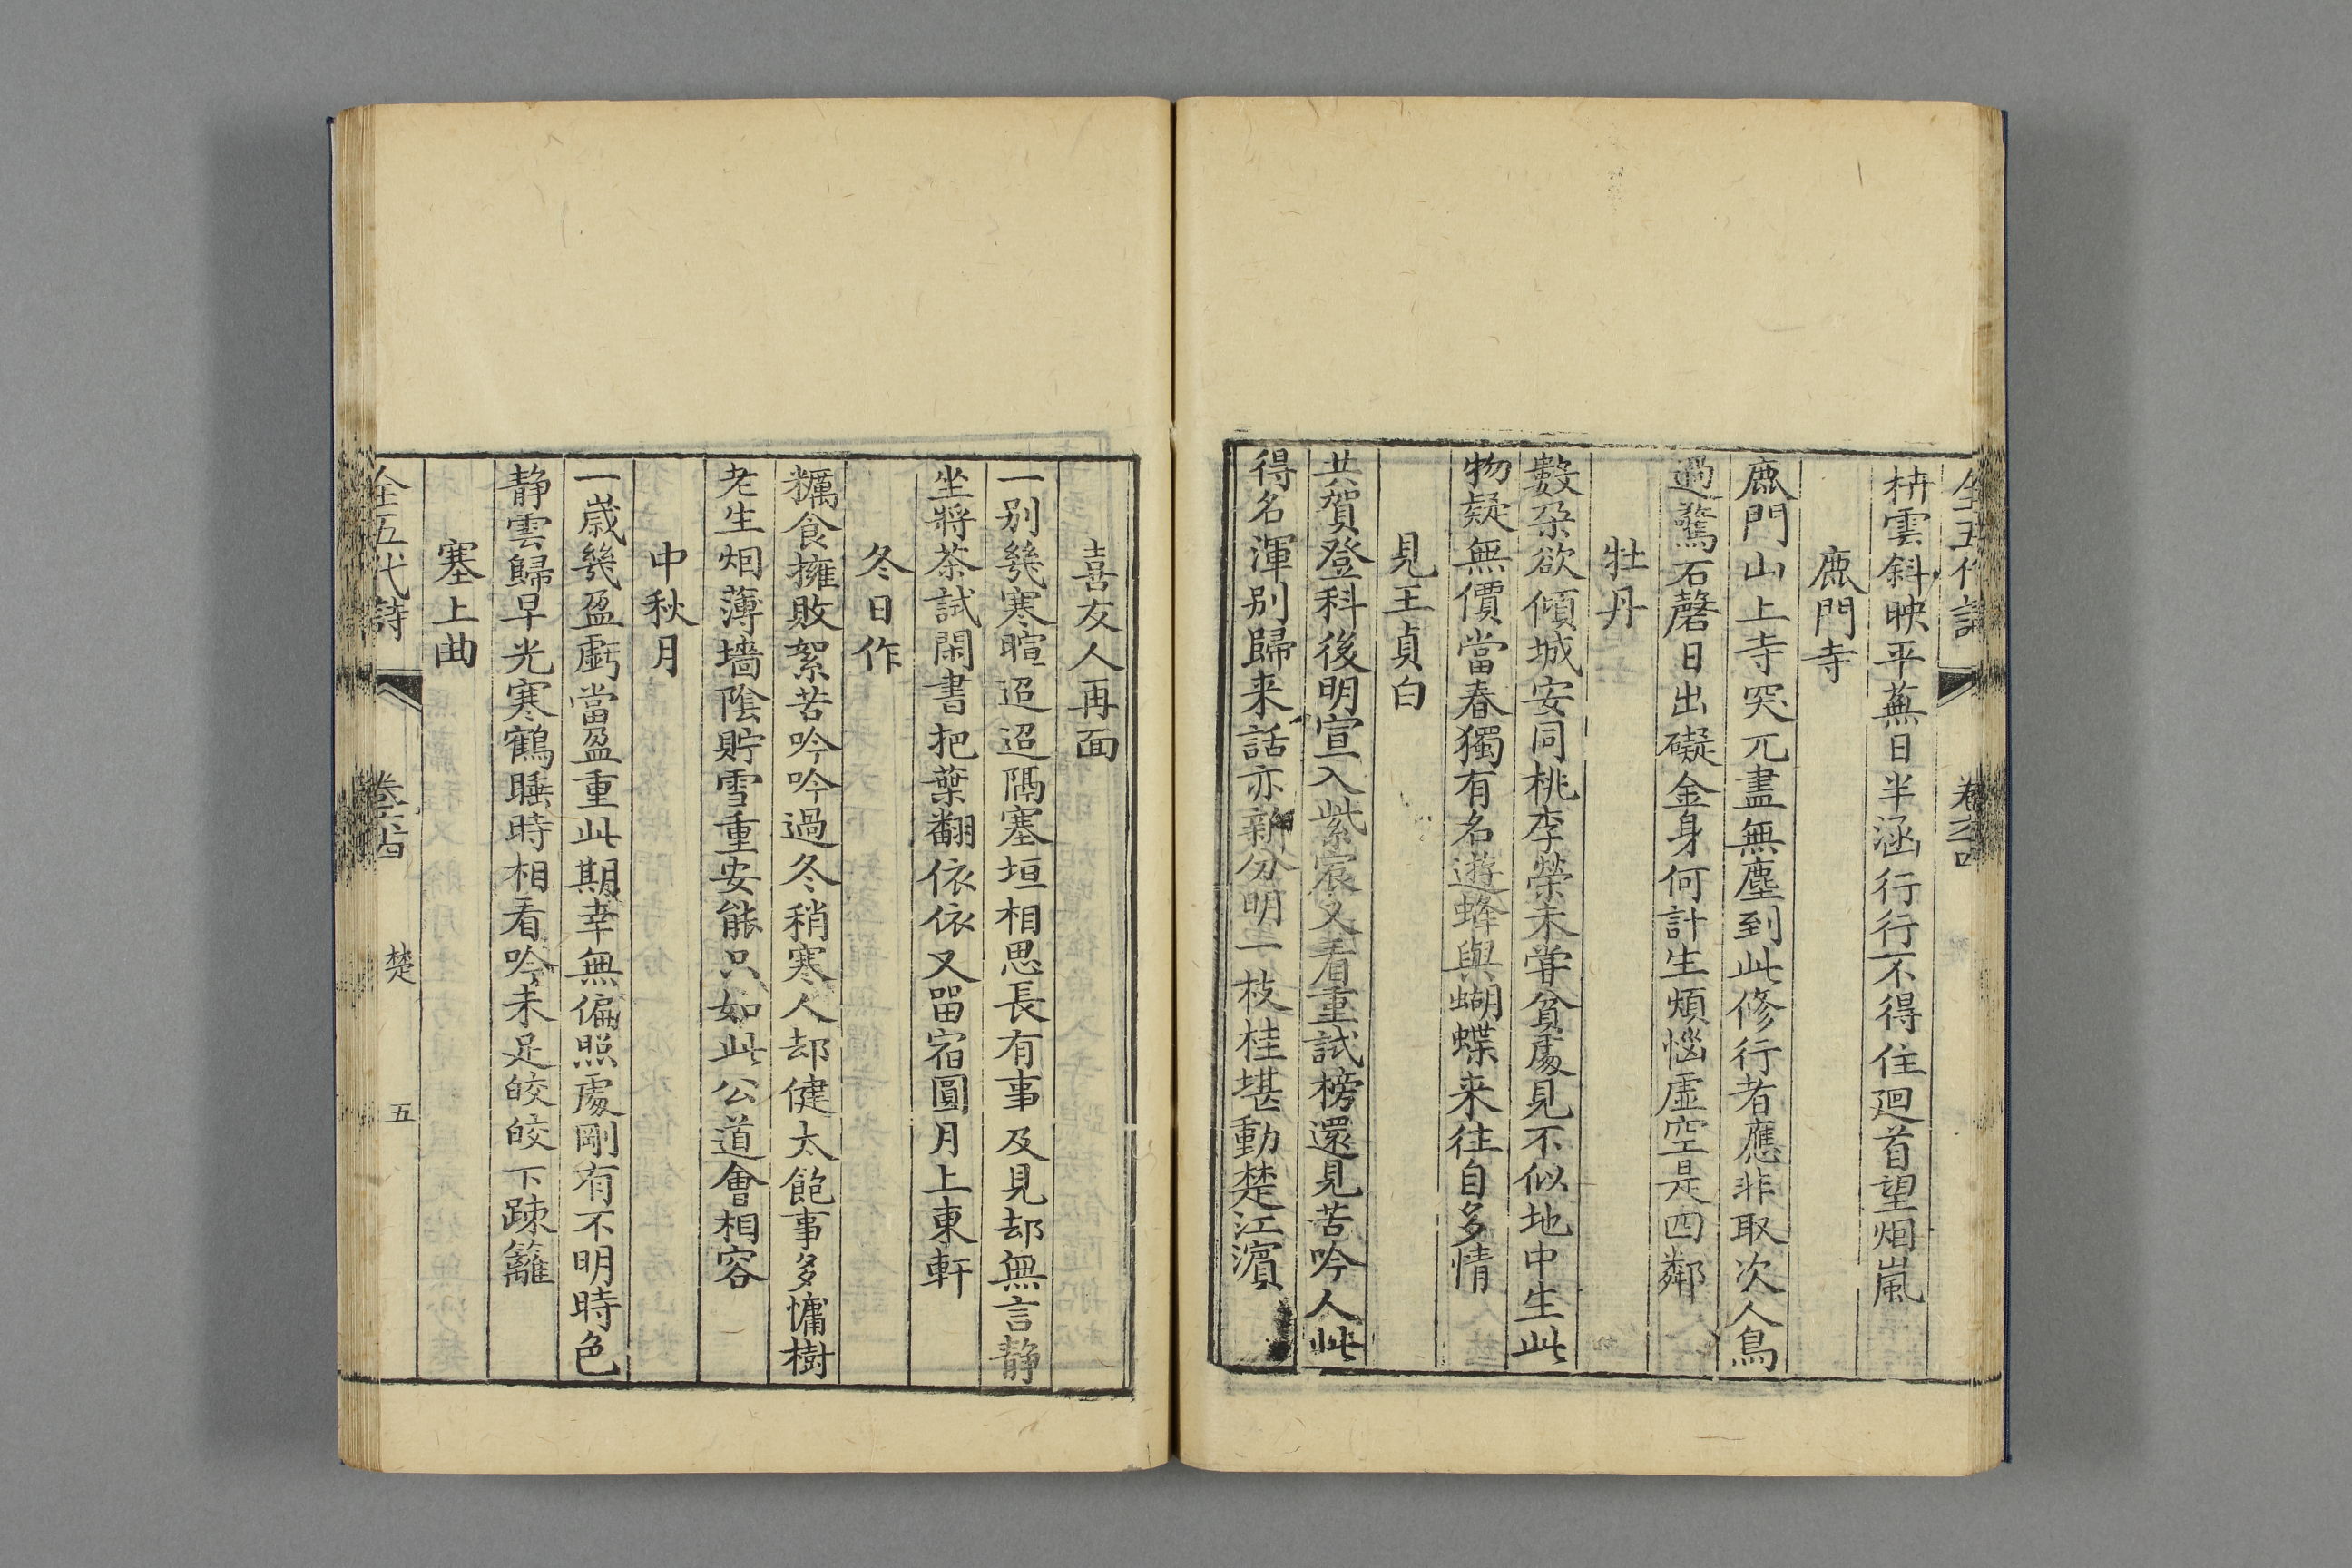 全五代詩
枿雲斜映平蕪日半涵行行不得住廻首望烟嵐
鹿門寺
鹿門山上寺突兀盡無塵到此修行者應非取次人鳥
過驚石磬日出礙金身何計生煩惱虛空是四鄰
牡丹
數朶欲傾城安同桃李榮未甞貧處見不似地中生此
物疑無價當春獨有名遊蜂與蝴蝶来往自多情
見王貞白
共賀登科後明宣入紫宸又看重試榜還見苦吟人此
得名渾别歸来話亦新分明一枝桂堪動楚江濱
喜友人再面
一别幾寒暄迢迢隔塞垣相思長有事及見却無言静
坐將茶試閑書把葉翻依依又畱宿圓月上東軒
冬日作
糲食擁敗絮苦吟吟過冬稍寒人却健太飽事多慵樹
老生烟薄墻陰貯雪重安能只如此公道會相容
中秋月
一歲幾盈虧當盈重此期幸無偏照處剛有不明時色
静雲歸早光寒鶴睡時相看吟未足皎皎下疎籬
塞上曲
全五代詩
楚
五